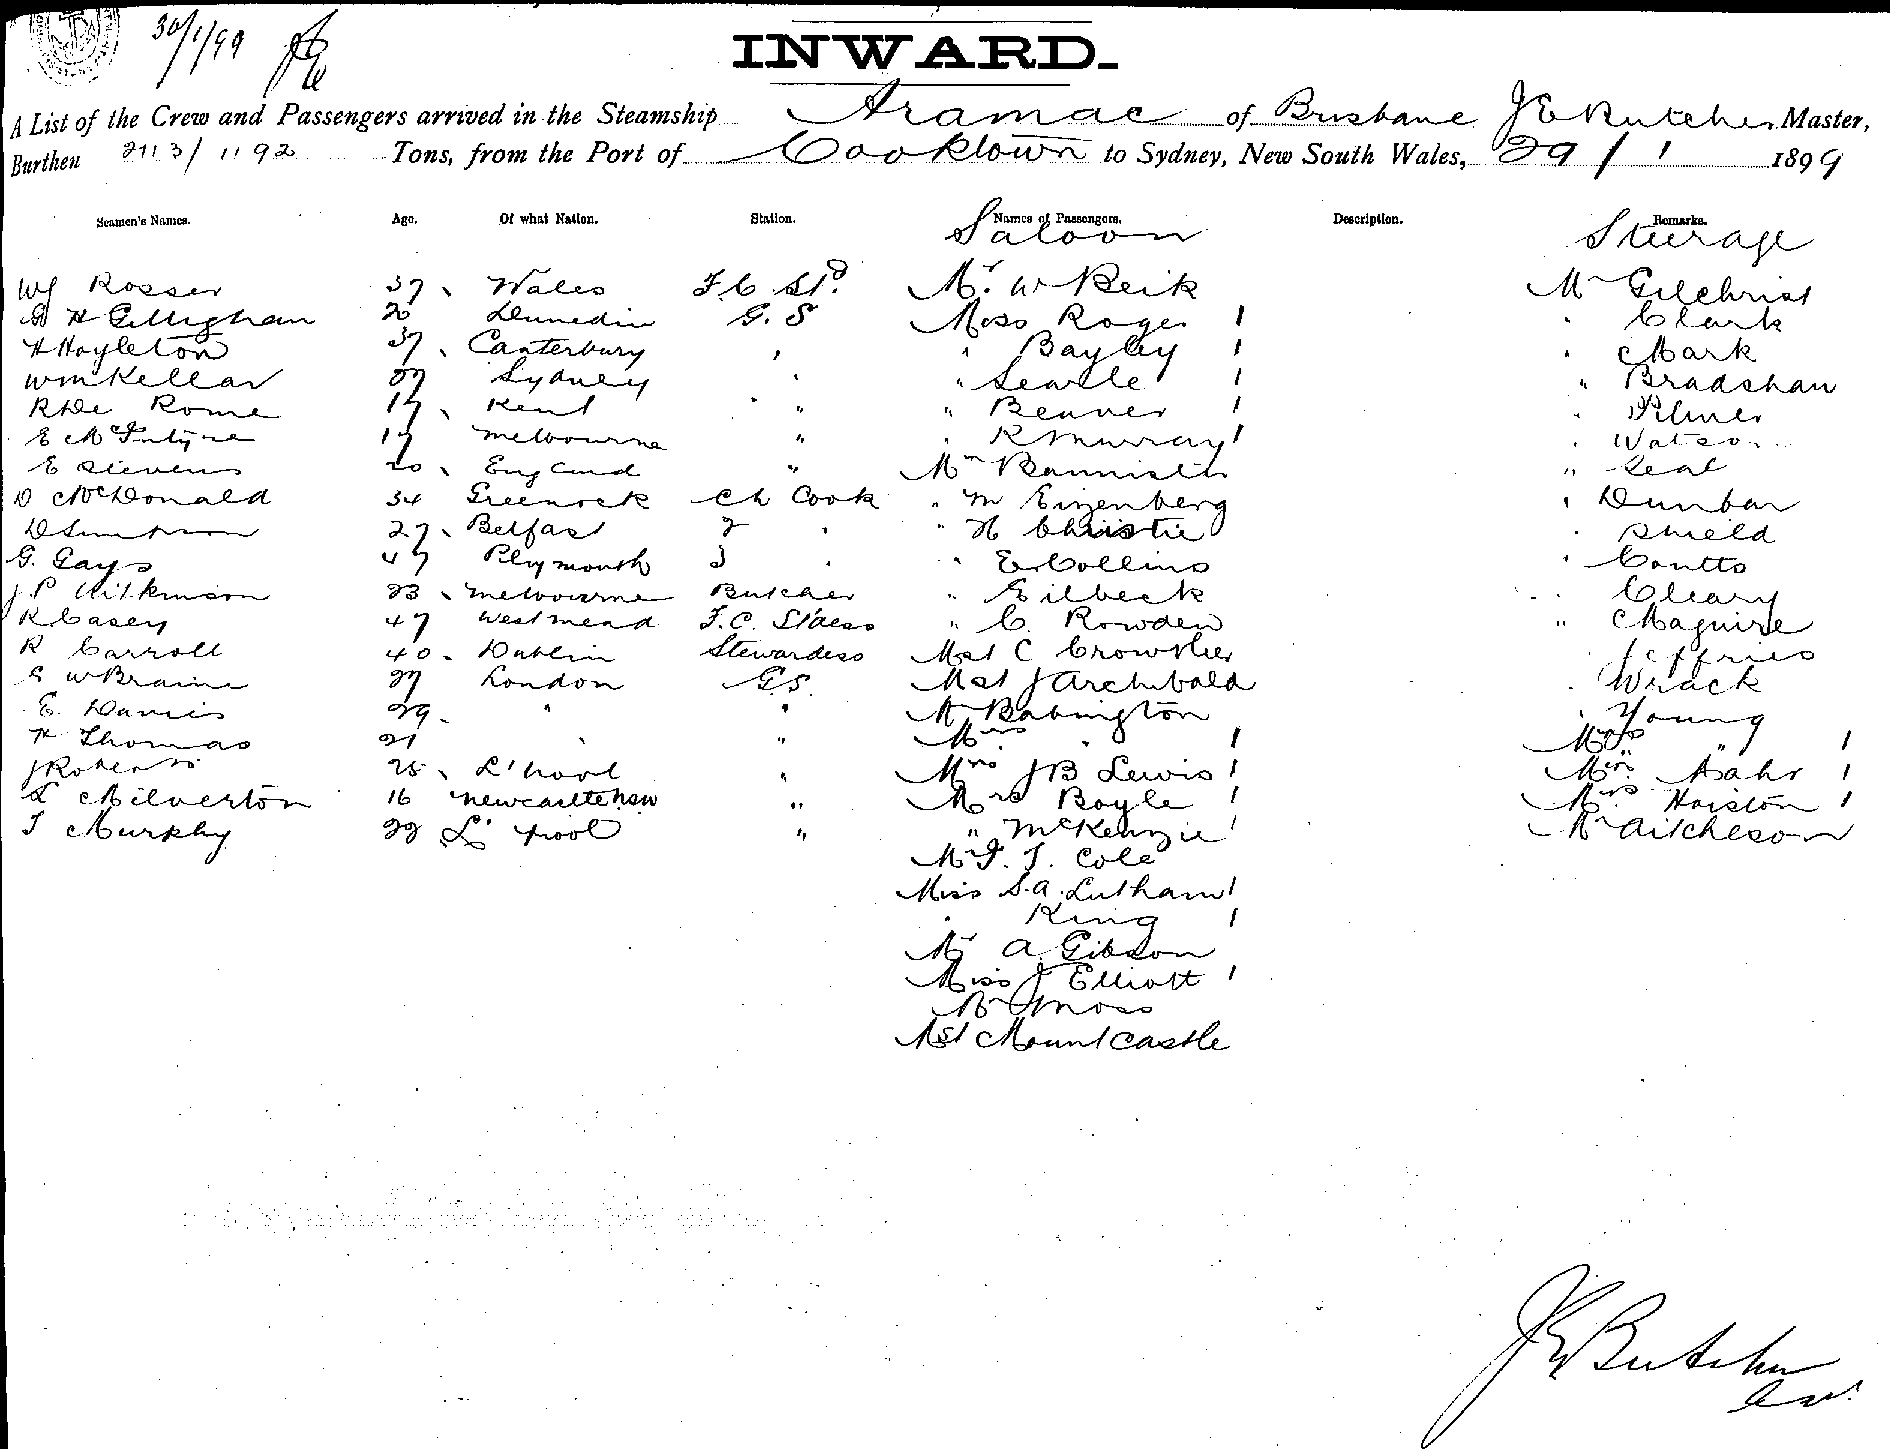 30/1/99
INWARD.
A List of the Crew and Passengers arrived in the Steamship Aramac of Brisbane J E Butcher Master,
Burthen 2113/1192 Tons, from the Port of Cooktown to Sydney, New South Wales, 29/1 1899
Seamen's Names. Age. Of what Nation. Station. Names of Passengers. Description. Remarks.
Saloon Steerage
WJ Rosser 37 Wales F.C. Std Mr W Reik Mr Gilchrist
G H Gillighan 20 Dunedin G.S Miss Roger 1 " Clark
H Hoyleton 37 Canterbury " " Bayley 1 " Mark
Wm Kellar 27 Sydney " " Searle 1 " Bradshaw
R De Rome 17 Kent " " Beaver 1 "
E McIntyre 17 Melbourne " " R Murray 1 " Watson
E Stevens 20 England " Mr Bannister " Seal
D McDonald 34 Greenock Ch Cook " M Eizenberg " Dunbar
D Simpson 27 Belfast 2 " " H Christie " Shield
G. Gays 47 Plymouth 3 " " E Collins " Coutts
J P Wilkinson 23 Melbourne Butcher " Eilbeck " Cleary
R Casey 47 Westmead F.C. St'dess " C. Rowden " Maguire
R Carroll 40 Dublin Stewardess Mst C Crowther " Jeffries
G W Braine 27 London G.S. Mst J Archibald " Wrack
E. Davies 29 " " Mr Babington " Young
H Thomas 21 " " Mrs " 1 Mrs " 1
J Roberts 25 L'pool " Mrs J B Lewis 1 Mrs 1
L Milverton 16 Newcastle NSW " Mrs Boyle 1 Mrs Hoiston 1
T Murphy 22 L'pool " " McKenzie 1 Mr Aitcheson
Mr F. T. Cole
Miss S.A. Lutham 1
" King 1
Mr A Gibson
Miss J Elliott 1
Mr J Moss
Mst Mountcastle
J E Butcher